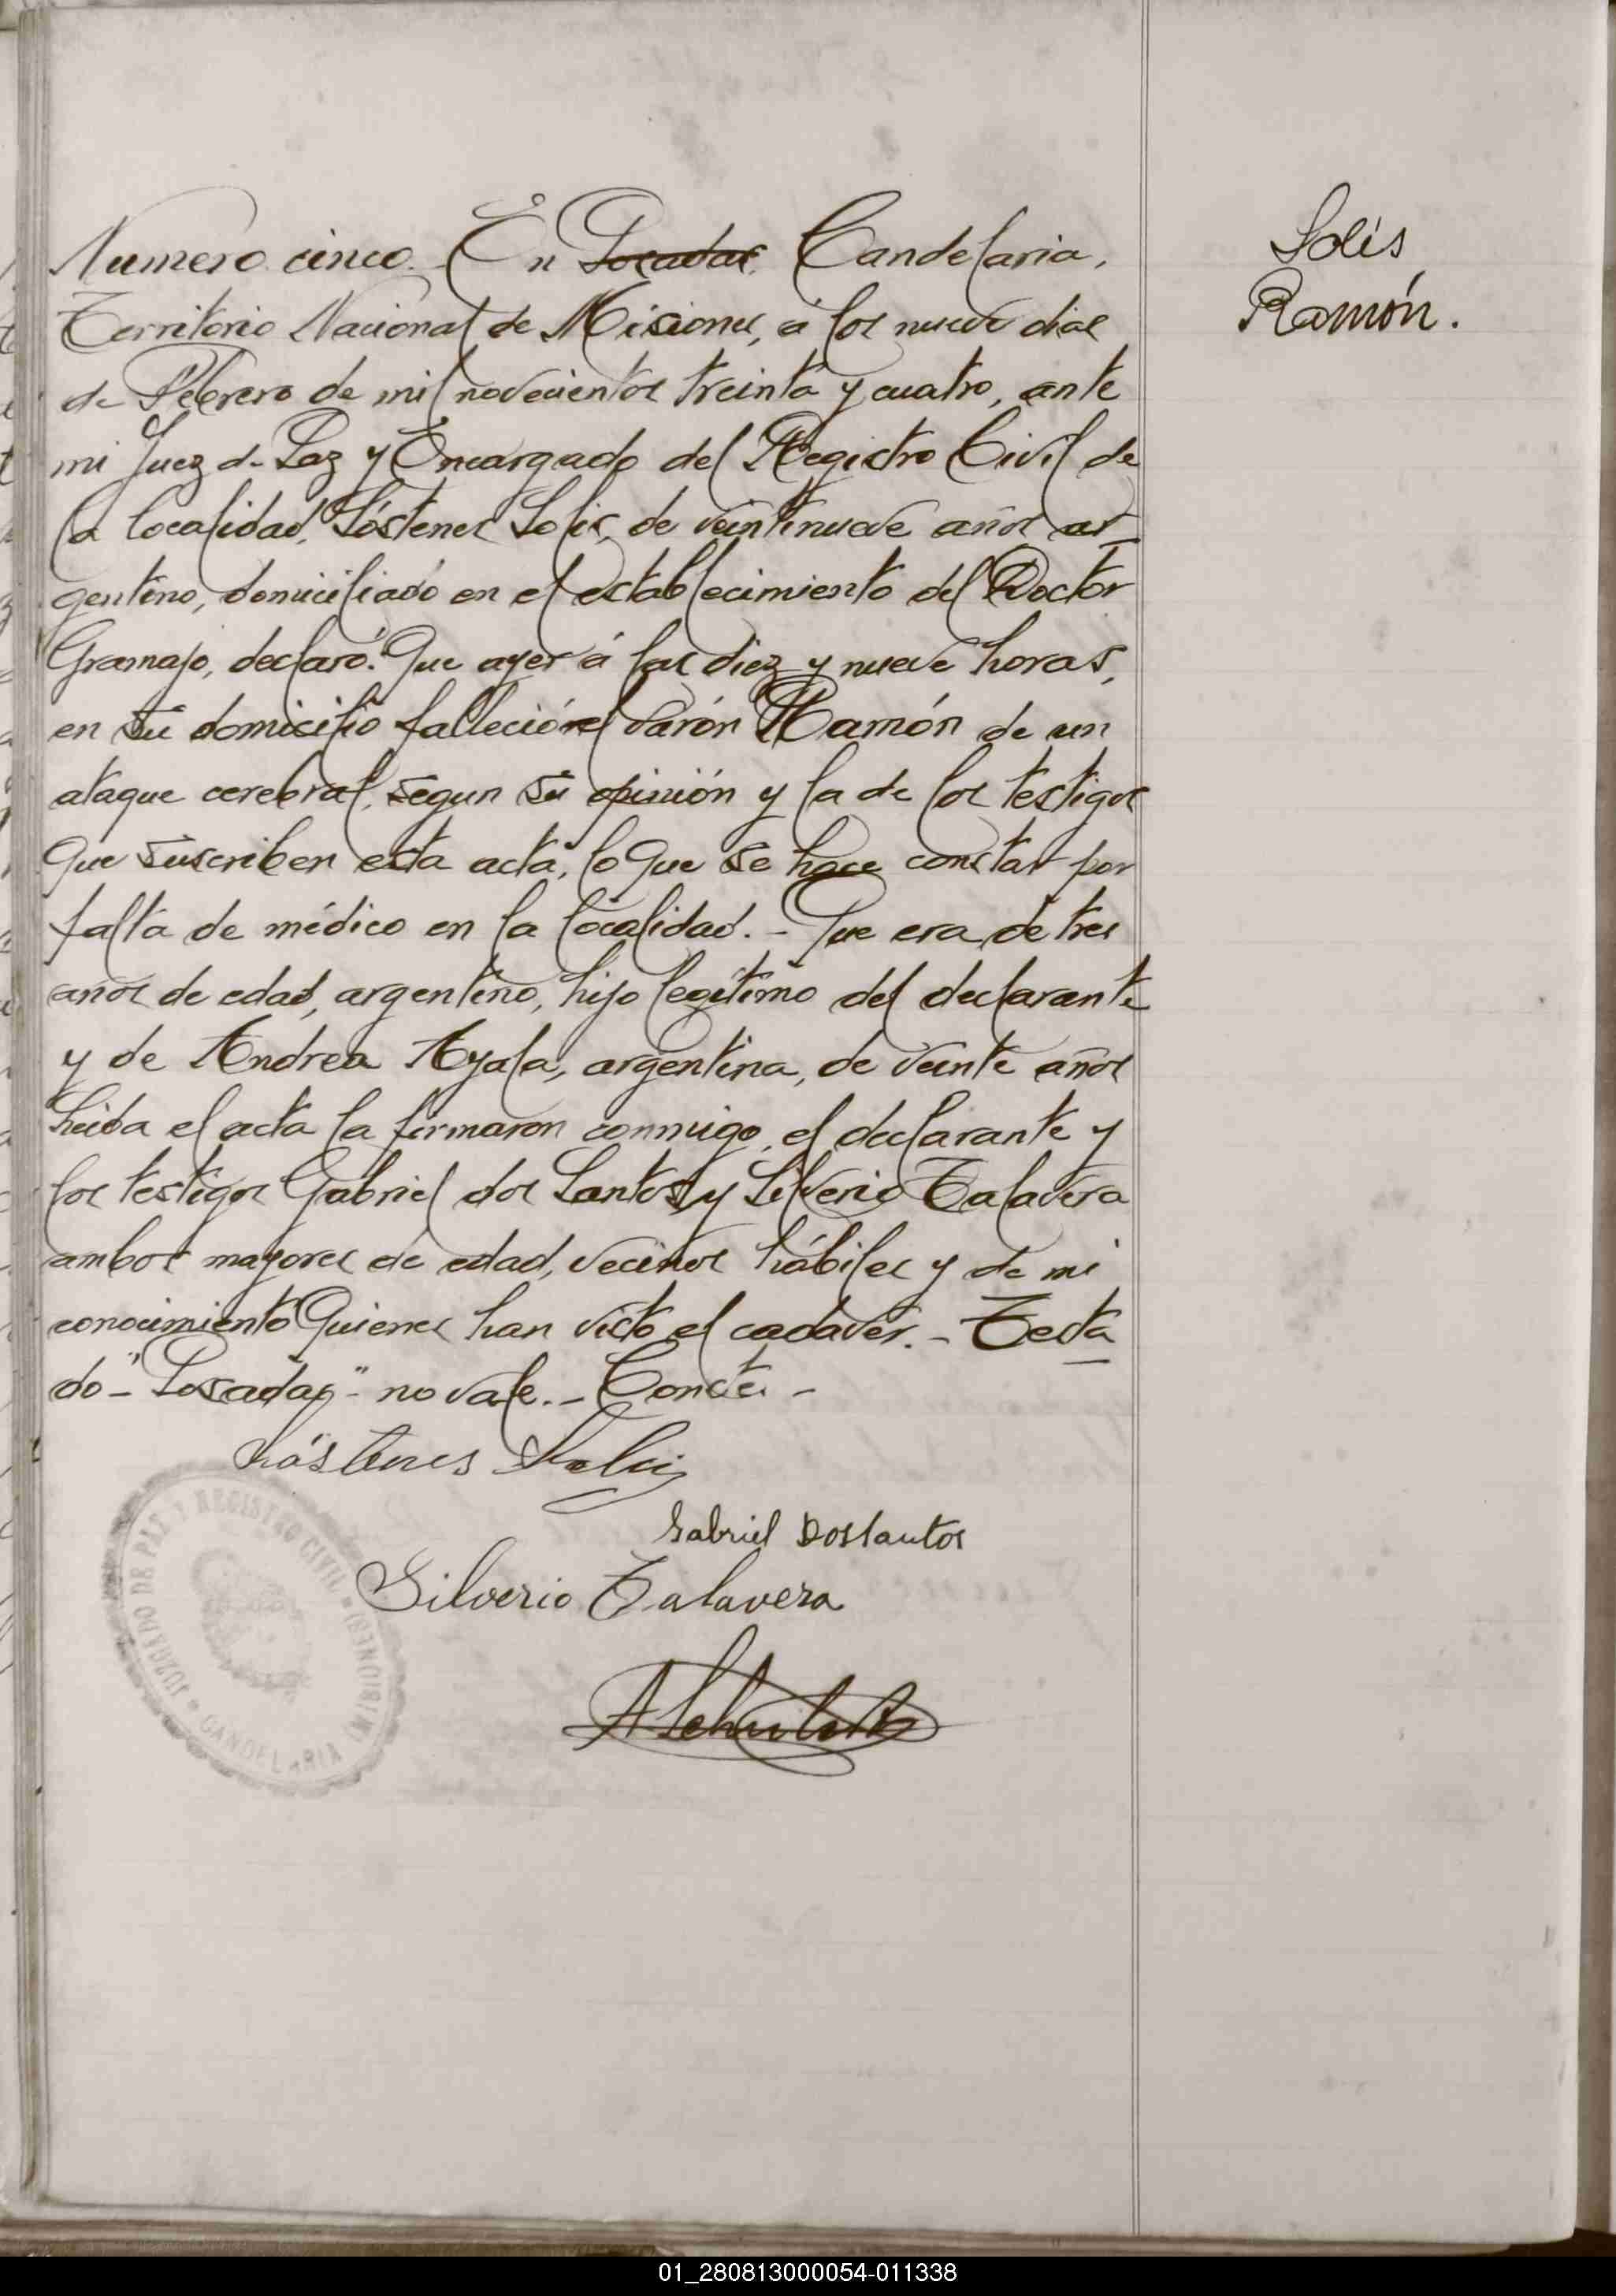 Numero cinco.- En Posadas, Candelaria,
Territorio Nacional de Misiones, á los nueve dias
de Febrero de mil novecientos treinta y cuatro, ante
mi Juez de Paz y Encargado del Registro Civil de
la localidad, Sóstenes Solis, de veintinueve años ar-
gentino, domiciliado en el establecimiento del Doctor
Gramajo, declaró: Que ayer á las diez y nueve horas,
en su domicilio falleció el varón Ramón de un
ataque cerebral, segun su opinión y la de los testigos
que suscriben esta acta, lo que se hace constar por
falta de médico en la localidad.- Que era de tres
años de edad, argentino, hijo legítimo del declarante
y de Andrea Ayala, argentina, de veinte años
Leida el acta la firmaron conmigo, el declarante y
los testigos Gabriel dos Santos y Silverio Talavera
ambos mayores de edad, vecinos hábiles y de mi
conocimiento quienes han visto el cadaver.- Testa
do-"Posadas"- no vale.- Conste.-
Sóstenes Solis
Gabriel Dossantos
Silverio Talavera
JUZGADO DE PAZ Y REGISTRO CIVIL
CANDELARIA (MISIONES)
Solís
Ramón.
01_280813000054-011338